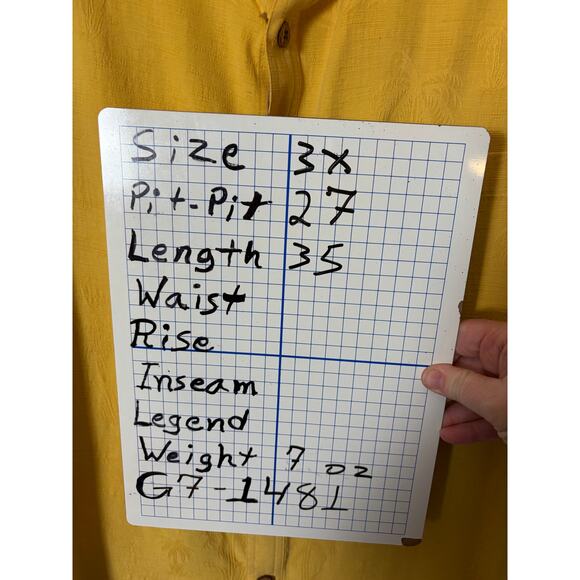 Size 3X
Pit-Pit 27
Length 35
Waist
Rise
Inseam
Legend
Weight 7 oz
G7-1481